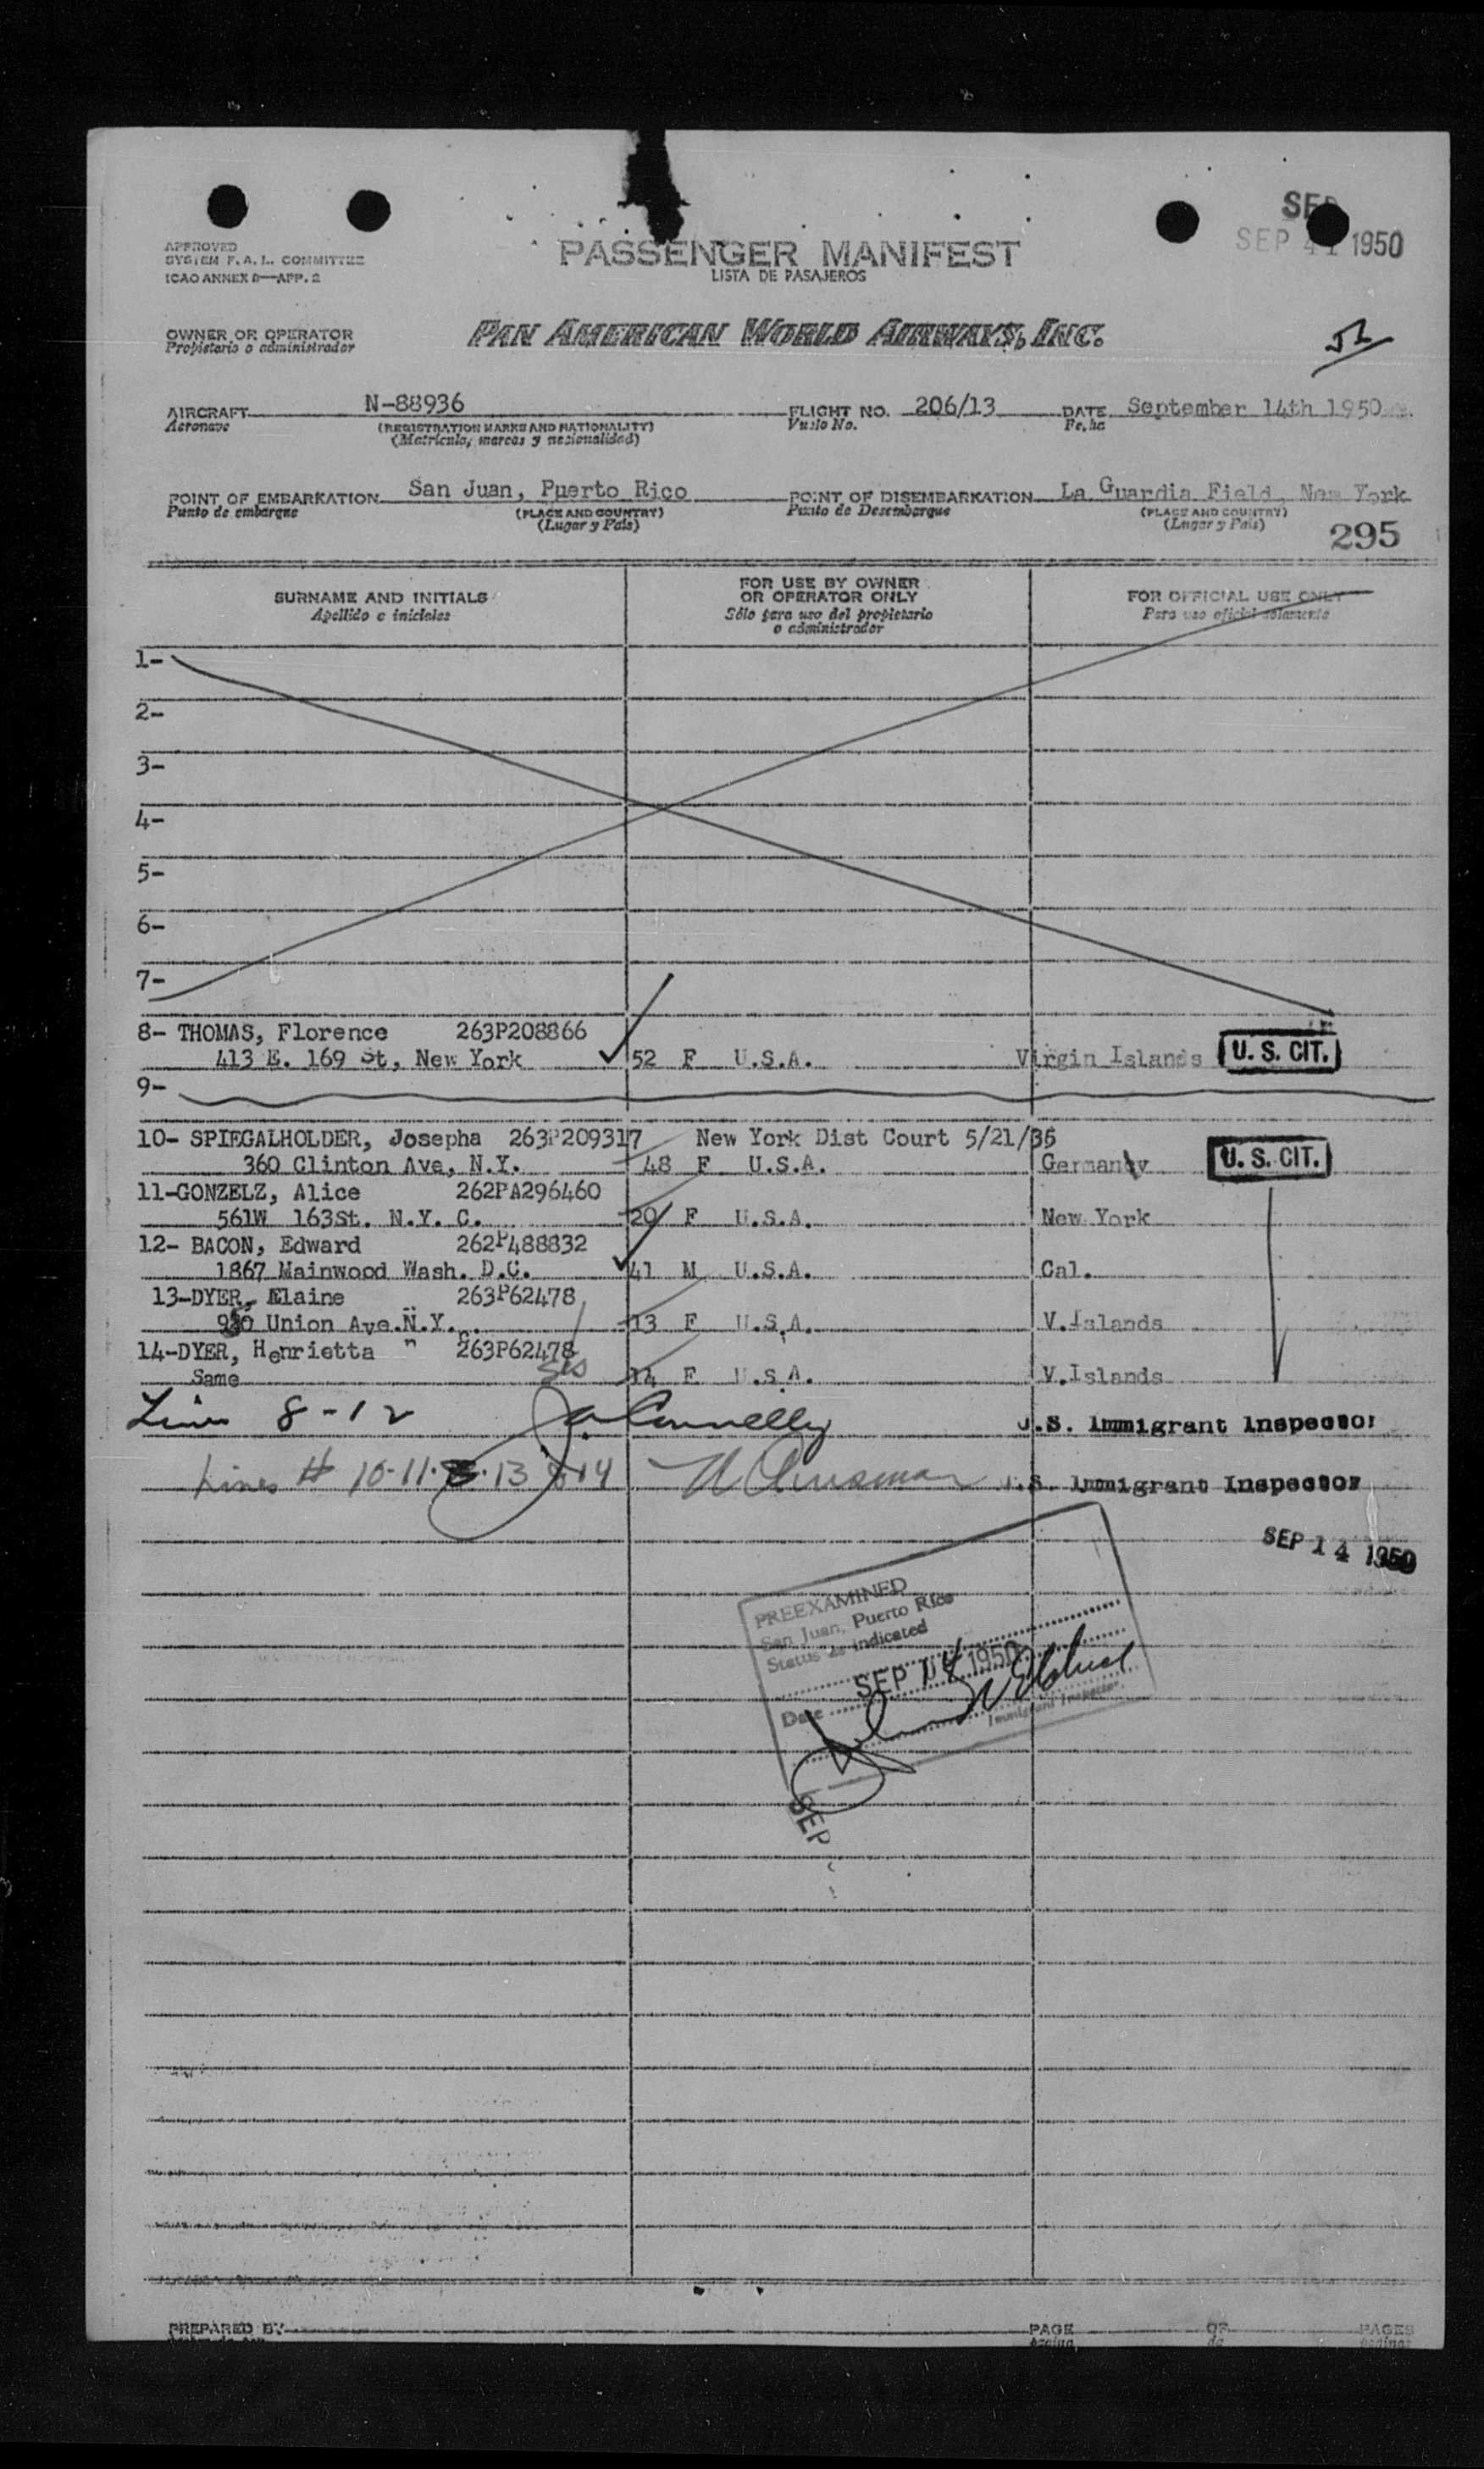 SEP
SEP 1950
APPROVED
SYSTEM F.A.L. COMMITTEE
ICAO ANNEX 9—APP. 2
PASSENGER MANIFEST
LISTA DE PASAJEROS
OWNER OR OPERATOR
Propietario o administrador
PAN AMERICAN WORLD AIRWAYS, INC.
AIRCRAFT N-88936 FLIGHT NO. 206/13 DATE September 14th 1950
Aeronave (REGISTRATION MARKS AND NATIONALITY) Vuelo No. Fecha
(Matrícula, marcas y nacionalidad)
POINT OF EMBARKATION San Juan, Puerto Rico POINT OF DISEMBARKATION La Guardia Field, New York
Punto de embarque (PLACE AND COUNTRY) Punto de Desembarque (PLACE AND COUNTRY)
(Lugar y País) (Lugar y País)
295
SURNAME AND INITIALS
Apellido e iniciales
FOR USE BY OWNER
OR OPERATOR ONLY
Sólo para uso del propietario
o administrador
FOR OFFICIAL USE ONLY
Para uso oficial solamente
1-
2-
3-
4-
5-
6-
7-
8- THOMAS, Florence 263P208866
413 E. 169 St, New York 52 F U.S.A. Virgin Islands U. S. CIT.
9-
10- SPIEGALHOLDER, Josepha 263P209317 New York Dist Court 5/21/35
360 Clinton Ave, N.Y. 48 F U.S.A. Germany U. S. CIT.
11-GONZELZ, Alice 262PA296460
561W 163St. N.Y. C. 20 F U.S.A. New York
12- BACON, Edward 262P488832
1867 Mainwood Wash. D.C. 41 M U.S.A. Cal.
13-DYER, Elaine 263P62478
Union Ave.N.Y.C. 13 F U.S.A. V.Islands
14-DYER, Henrietta " 263P62478
Same 14 F U.S.A. V.Islands
8-12 J. Connelly U.S. Immigrant Inspector
Lines # 10-11- 13 & 14 U.S. Immigrant Inspector
SEP 14 1950
PREEXAMINED
San Juan, Puerto Rico
Status as indicated
SEP 14 1950
Date
Immigrant Inspector
SEP
PREPARED BY PAGE OF PAGES
página de páginas